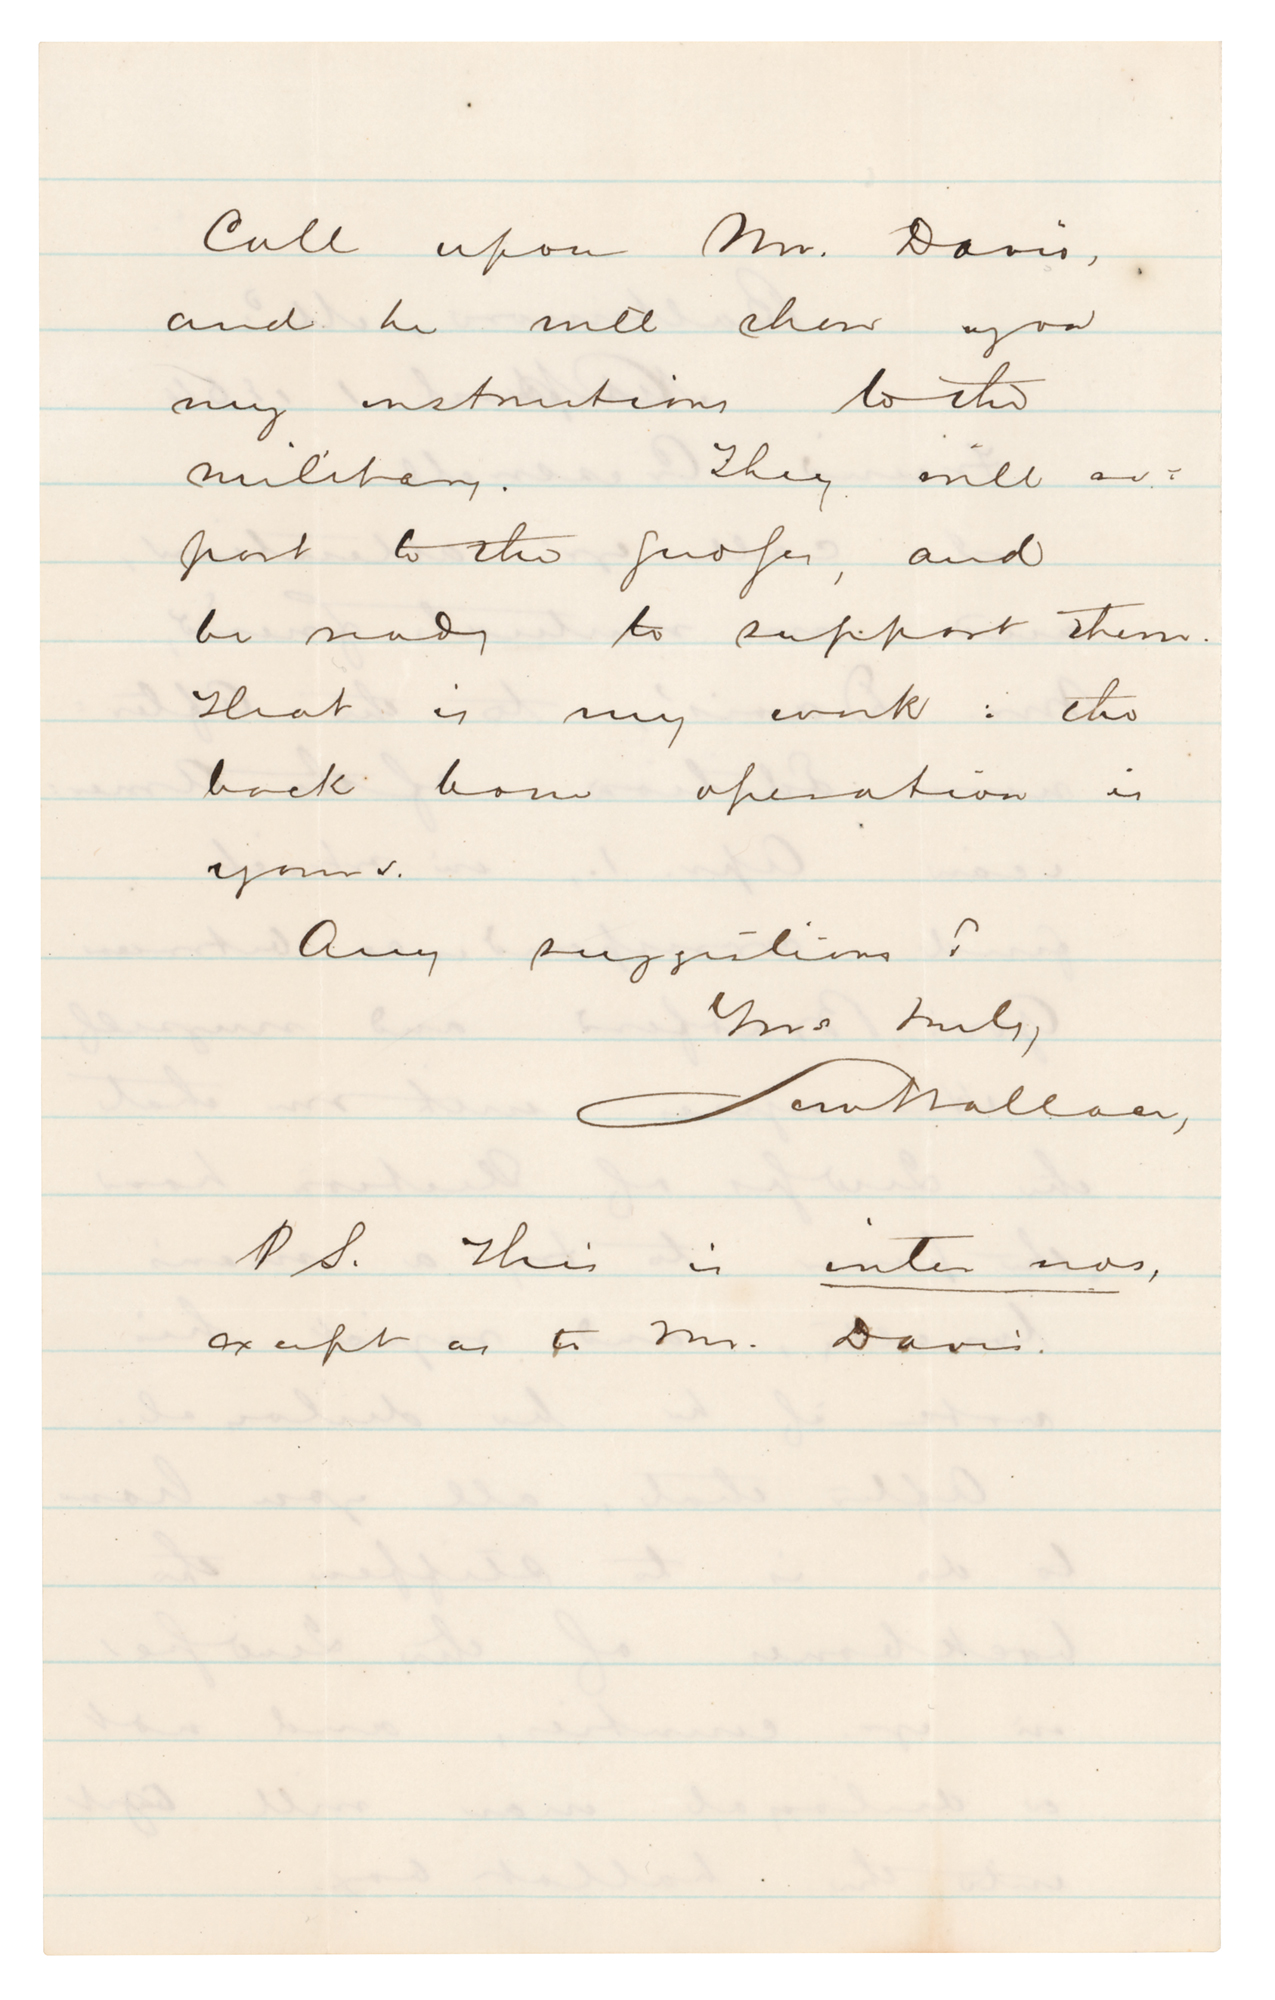 Call upon Mr. Davis,
and he will show you
my instructions to the
military. They will re-
port to the Judges, and
be ready to support them.
That is my work: the
back bone operation is
yours.
Any suggestions?
Yrs truly,
Lew Wallace,
P.S. This is inter nos,
except as to Mr. Davis.